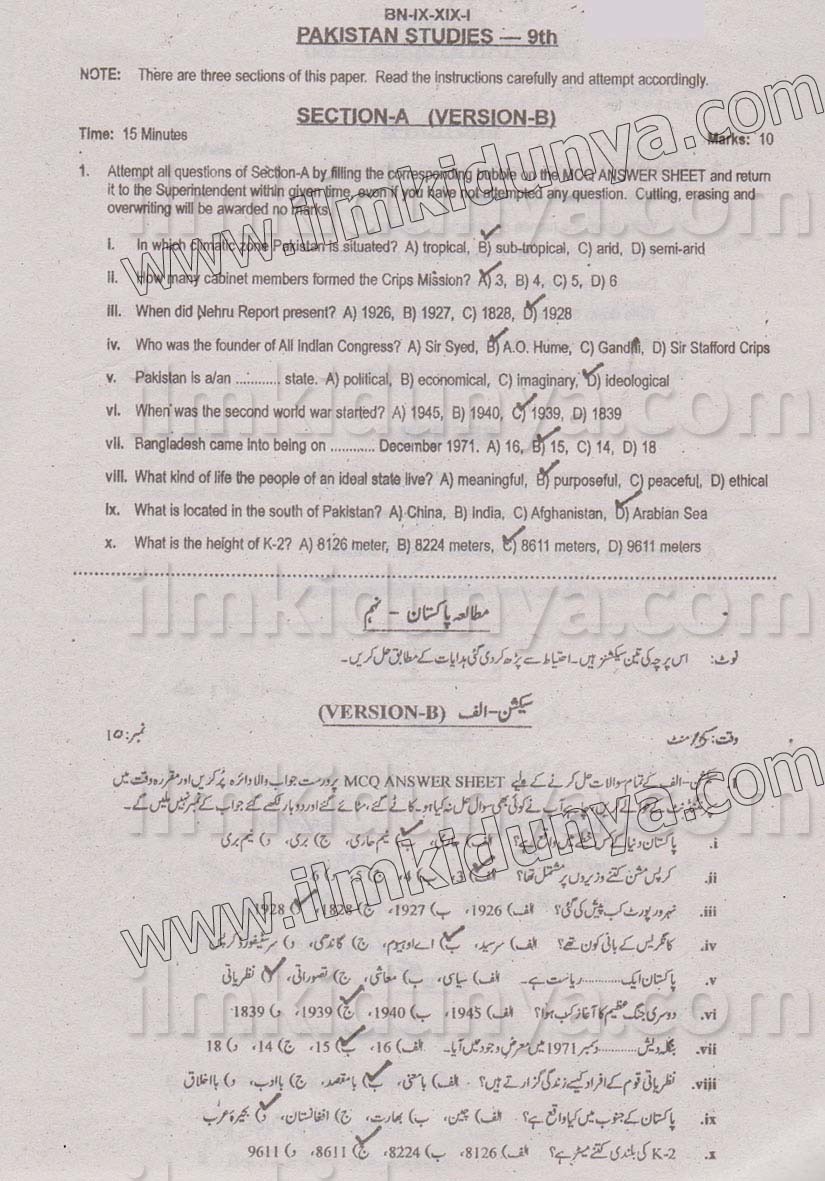 BN-IX-XIX-I
PAKISTAN STUDIES — 9th
NOTE: There are three sections of this paper. Read the instructions carefully and attempt accordingly.
SECTION-A (VERSION-B)
Time: 15 Minutes Marks: 10
1. Attempt all questions of Section-A by filling the corresponding bubble on the MCQ ANSWER SHEET and return
it to the Superintendent within given time, even if you have not attempted any question. Cutting, erasing and
overwriting will be awarded no marks.
i. In which climatic zone Pakistan is situated? A) tropical, B) sub-tropical, C) arid, D) semi-arid
ii. How many cabinet members formed the Crips Mission? A) 3, B) 4, C) 5, D) 6
iii. When did Nehru Report present? A) 1926, B) 1927, C) 1828, D) 1928
iv. Who was the founder of All Indian Congress? A) Sir Syed, B) A.O. Hume, C) Gandhi, D) Sir Stafford Crips
v. Pakistan is a/an ............ state. A) political, B) economical, C) imaginary, D) ideological
vi. When was the second world war started? A) 1945, B) 1940, C) 1939, D) 1839
vii. Bangladesh came into being on ............ December 1971. A) 16, B) 15, C) 14, D) 18
viii. What kind of life the people of an ideal state live? A) meaningful, B) purposeful, C) peaceful, D) ethical
ix. What is located in the south of Pakistan? A) China, B) India, C) Afghanistan, D) Arabian Sea
x. What is the height of K-2? A) 8126 meter, B) 8224 meters, C) 8611 meters, D) 9611 meters
مطالعہ پاکستان - نہم
نوٹ: اس پرچہ کی تین سیکشنز ہیں۔ احتیاط سے پڑھ کر دی گئی ہدایات کے مطابق حل کریں۔
سیکشن-الف (VERSION-B)
وقت: 15 منٹ نمبر: 10
1. سیکشن-الف کے تمام سوالات حل کرنے کے لیے MCQ ANSWER SHEET پر درست جواب والا دائرہ پُر کریں اور مقررہ وقت میں
آپ نے کوئی بھی سوال حل نہ کیا ہو۔ کاٹے گئے، مٹائے گئے اور دوبار لکھے گئے جواب کے نمبر نہیں ملیں گے۔
i. پاکستان دنیا کے کس خطے میں واقع ہے؟ الف) ب) نیم حاری، ج) بری، د) نیم بری
ii. کرپس مشن کتنے وزیروں پر مشتمل تھا؟ الف) 3، ب) 4، ج) 5، د) 6
iii. نہرو رپورٹ کب پیش کی گئی؟ الف) 1926، ب) 1927، ج) 1828، د) 1928
iv. کانگریس کے بانی کون تھے؟ الف) سرسید، ب) اے او ہیوم، ج) گاندھی، د) سرسٹیفورڈ کرپس
v. پاکستان ایک ............ ریاست ہے۔ الف) سیاسی، ب) معاشی، ج) تصوراتی، د) نظریاتی
vi. دوسری جنگ عظیم کا آغاز کب ہوا؟ الف) 1945، ب) 1940، ج) 1939، د) 1839
vii. بنگلہ دیش ............ دسمبر 1971 میں معرض وجود میں آیا۔ الف) 16، ب) 15، ج) 14، د) 18
viii. نظریاتی قوم کے افراد کیسے زندگی گزارتے ہیں؟ الف) بامعنی، ب) بامقصد، ج) باادب، د) بااخلاق
ix. پاکستان کے جنوب میں کیا واقع ہے؟ الف) چین، ب) بھارت، ج) افغانستان، د) بحیرۂ عرب
x. K-2 کی بلندی کتنے میٹر ہے؟ الف) 8126، ب) 8224، ج) 8611، د) 9611
www.ilmkidunya.com
ilmkidunya.com
ilmkidunya.com
ilmkidunya.com
www.ilmkidunya.com
ilmkidunya.com
ilmkidunya.com